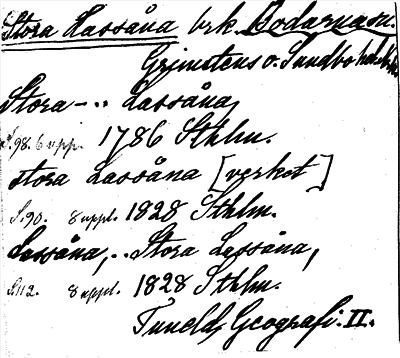 Stora Lassåna brk. Bodarnasn.
Grimstens o. Sundbo häradr.
Stora - .. Lassåna,
S. 98. 6 uppl. 1786 Sthlm.
Stora Lassåna [verket]
S. 90. 8 uppl. 1828 Sthlm.
Lassåna, .. Stora Lassåna,
S. 112. 8 uppl. 1828 Sthlm.
Tunelds Geografi. II.